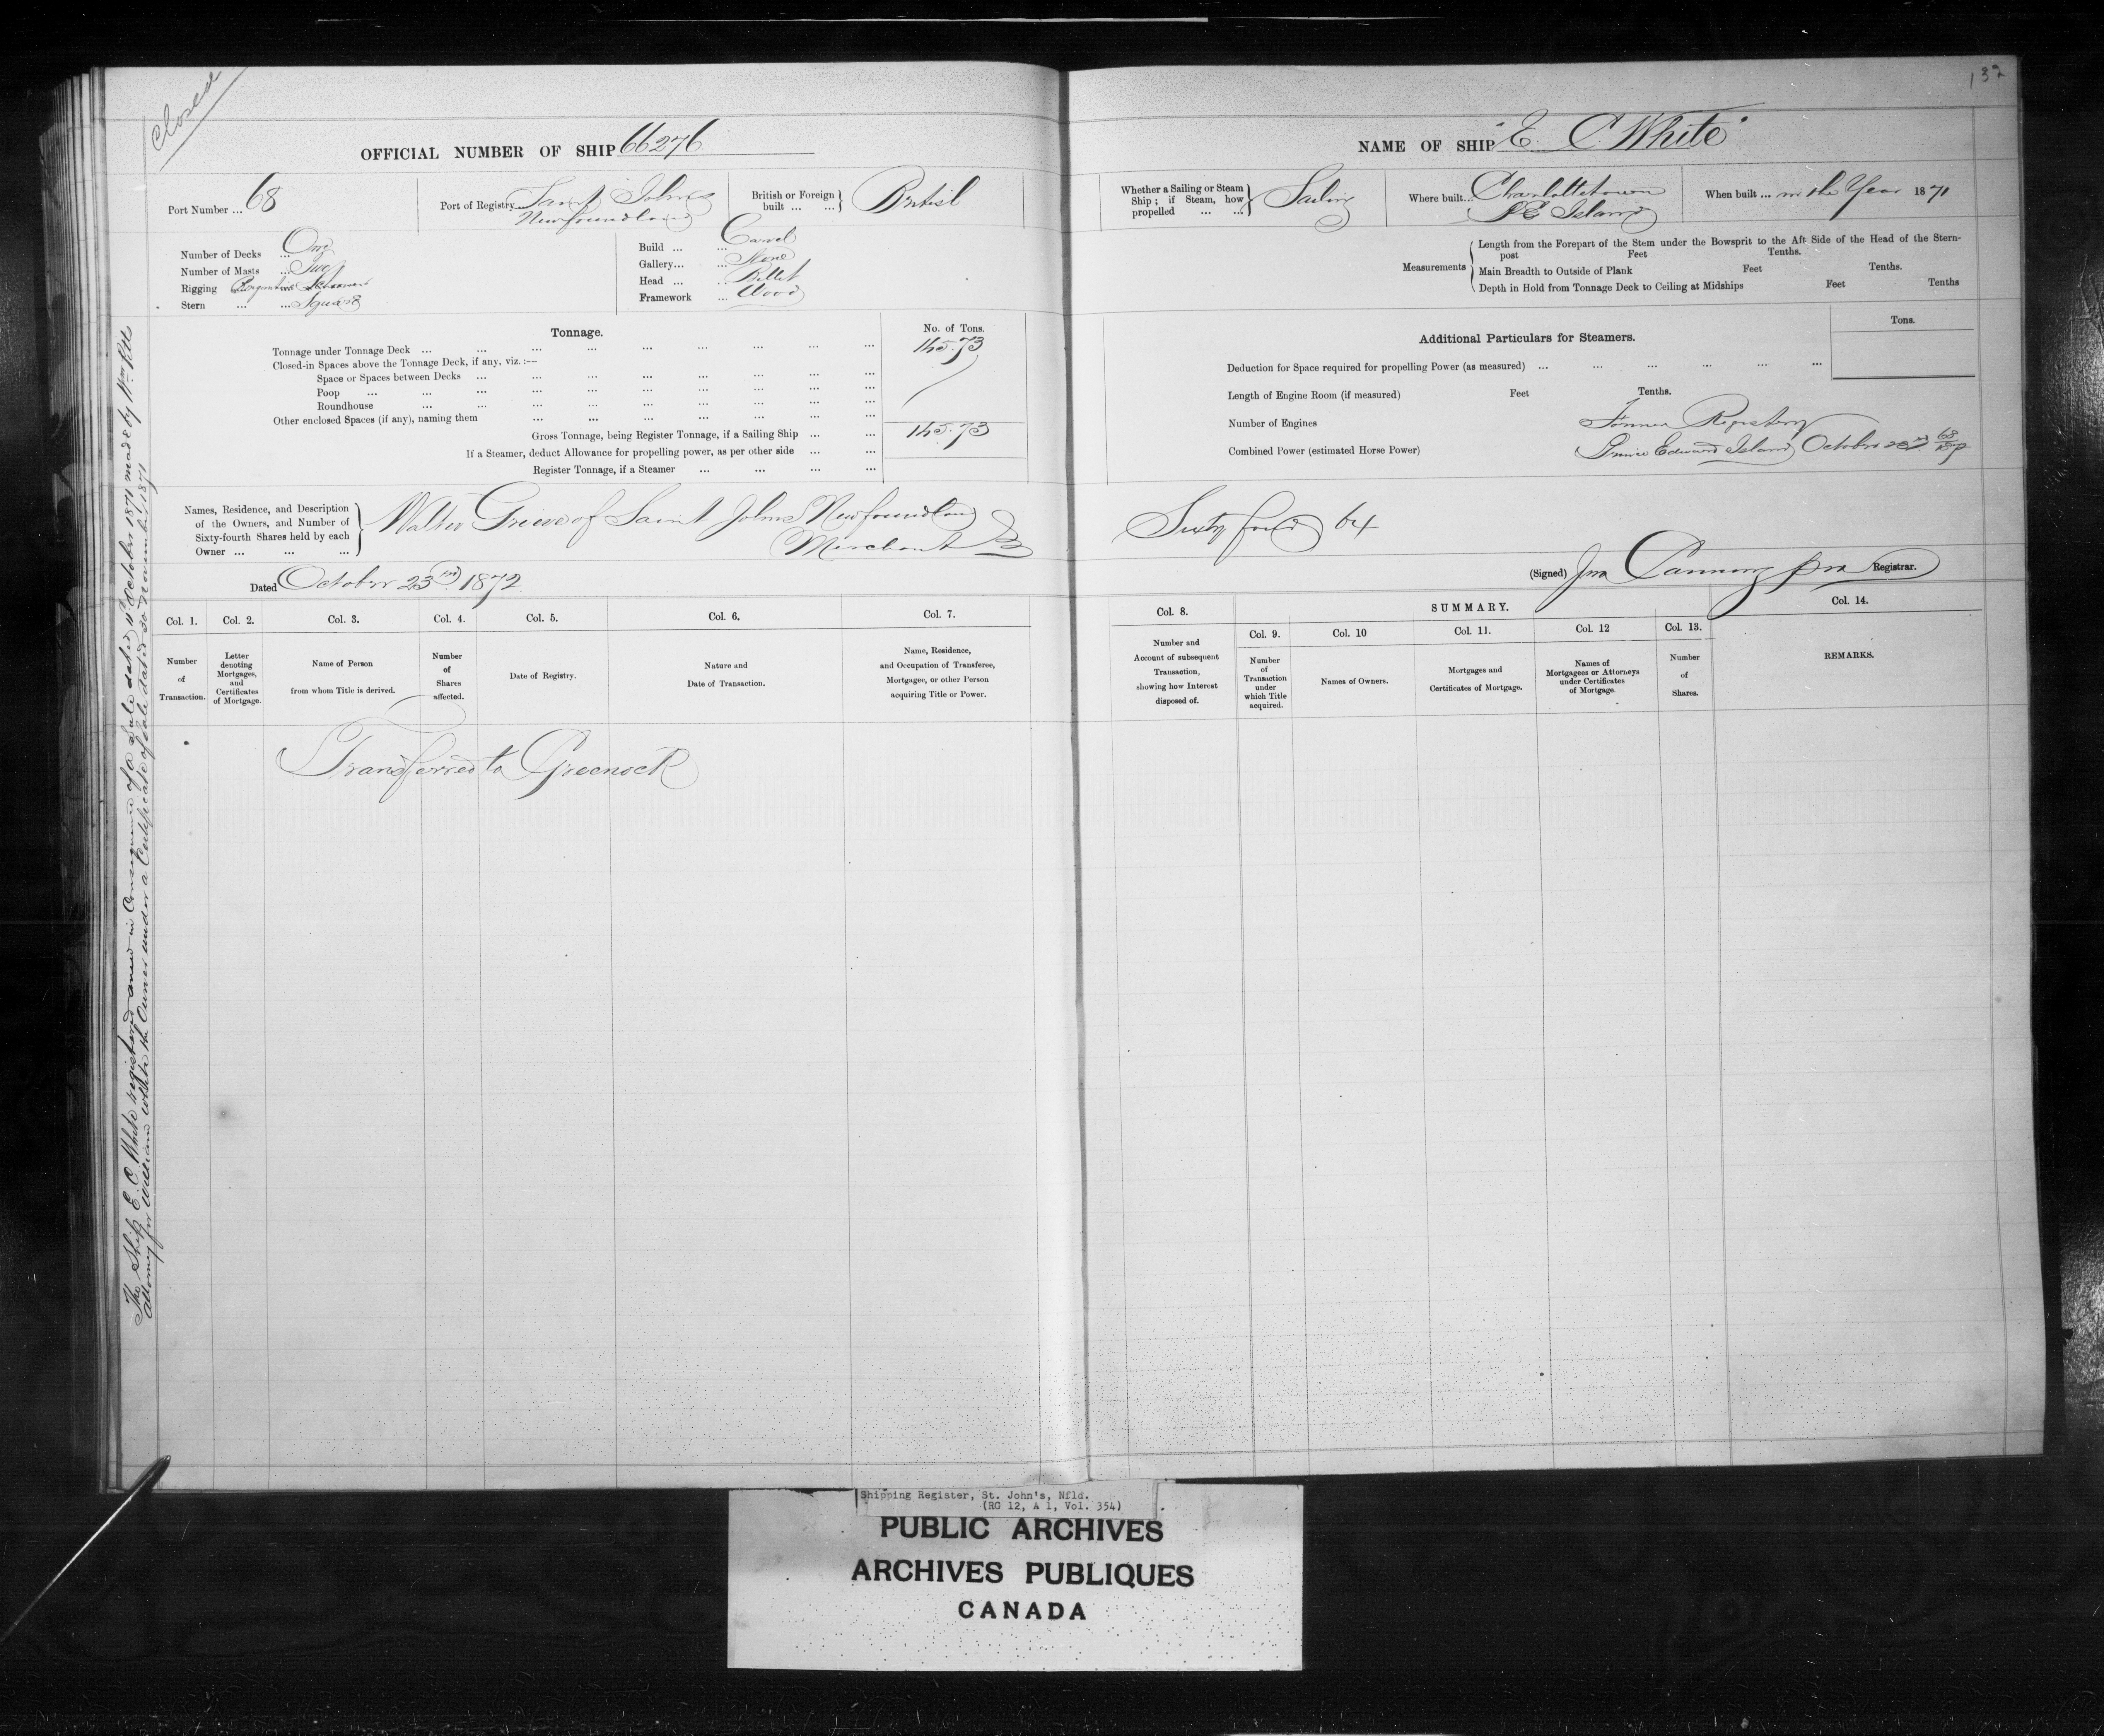 Closed
132
OFFICIAL NUMBER OF SHIP 66276
NAME OF SHIP "E. C. White"
Port Number ... 68
Port of Registry Saint Johns
Newfoundland
British or Foreign built ... ... } British
Whether a Sailing or Steam Ship ; if Steam, how propelled ... ... } Sailing
Where built... Charlottetown
P E Island
When built ... in the Year 1871
Number of Decks ... One
Number of Masts ... Two
Rigging Brigantine Schooner
Stern ... ... Square
Build ... ... Carvel
Gallery... ... None
Head ... ... Billet
Framework ... Wood
Measurements { Length from the Forepart of the Stem under the Bowsprit to the Aft Side of the Head of the Stern-
post Feet Tenths.
Main Breadth to Outside of Plank Feet Tenths.
Depth in Hold from Tonnage Deck to Ceiling at Midships Feet Tenths
Tonnage.
No. of Tons.
Tonnage under Tonnage Deck ... ... ... ... ... ... ... 145.73
Closed-in Spaces above the Tonnage Deck, if any, viz. :--
Space or Spaces between Decks ... ... ... ... ... ... ...
Poop ... ... ... ... ... ... ... ...
Roundhouse ... ... ... ... ... ... ... ...
Other enclosed Spaces (if any), naming them ... ... ... ... ... ...
Gross Tonnage, being Register Tonnage, if a Sailing Ship ... ... 145.73
If a Steamer, deduct Allowance for propelling power, as per other side ... ...
Register Tonnage, if a Steamer ... ... ... ...
Additional Particulars for Steamers.
Tons.
Deduction for Space required for propelling Power (as measured) ... ... ... ... ... ...
Length of Engine Room (if measured) Feet Tenths.
Number of Engines
Combined Power (estimated Horse Power)
Former Registry
Prince Edward Island October
Names, Residence, and Description
of the Owners, and Number of
Sixty-fourth Shares held by each
Owner ... ... ... }
Walter Grieve of Saint Johns Newfoundland
Merchant
Sixty four 64
Dated October 23rd 1872
(Signed) Jno Canning pro Registrar.
Col. 1. Col. 2. Col. 3. Col. 4. Col. 5. Col. 6. Col. 7.
Number of Transaction.
Letter denoting Mortgages, and Certificates of Mortgage.
Name of Person from whom Title is derived.
Number of Shares affected.
Date of Registry.
Nature and Date of Transaction.
Name, Residence, and Occupation of Transferee, Mortgagee, or other Person acquiring Title or Power.
Col. 8.
SUMMARY.
Col. 14.
Col. 9. Col. 10 Col. 11. Col. 12 Col. 13.
Number and Account of subsequent Transaction, showing how Interest disposed of.
Number of Transaction under which Title acquired.
Names of Owners.
Mortgages and Certificates of Mortgage.
Names of Mortgagees or Attorneys under Certificates of Mortgage.
Number of Shares.
REMARKS.
Transferred to Greenock
The Ship E. C. White registered anew in Consequence of a Sale dated 11th October 1871 made by Wm
Attorney for William White the Owner under a Certificate of Sale dated 30 November 1871
Shipping Register, St. John's, Nfld.
(RG 12, A 1, Vol. 354)
PUBLIC ARCHIVES
ARCHIVES PUBLIQUES
CANADA